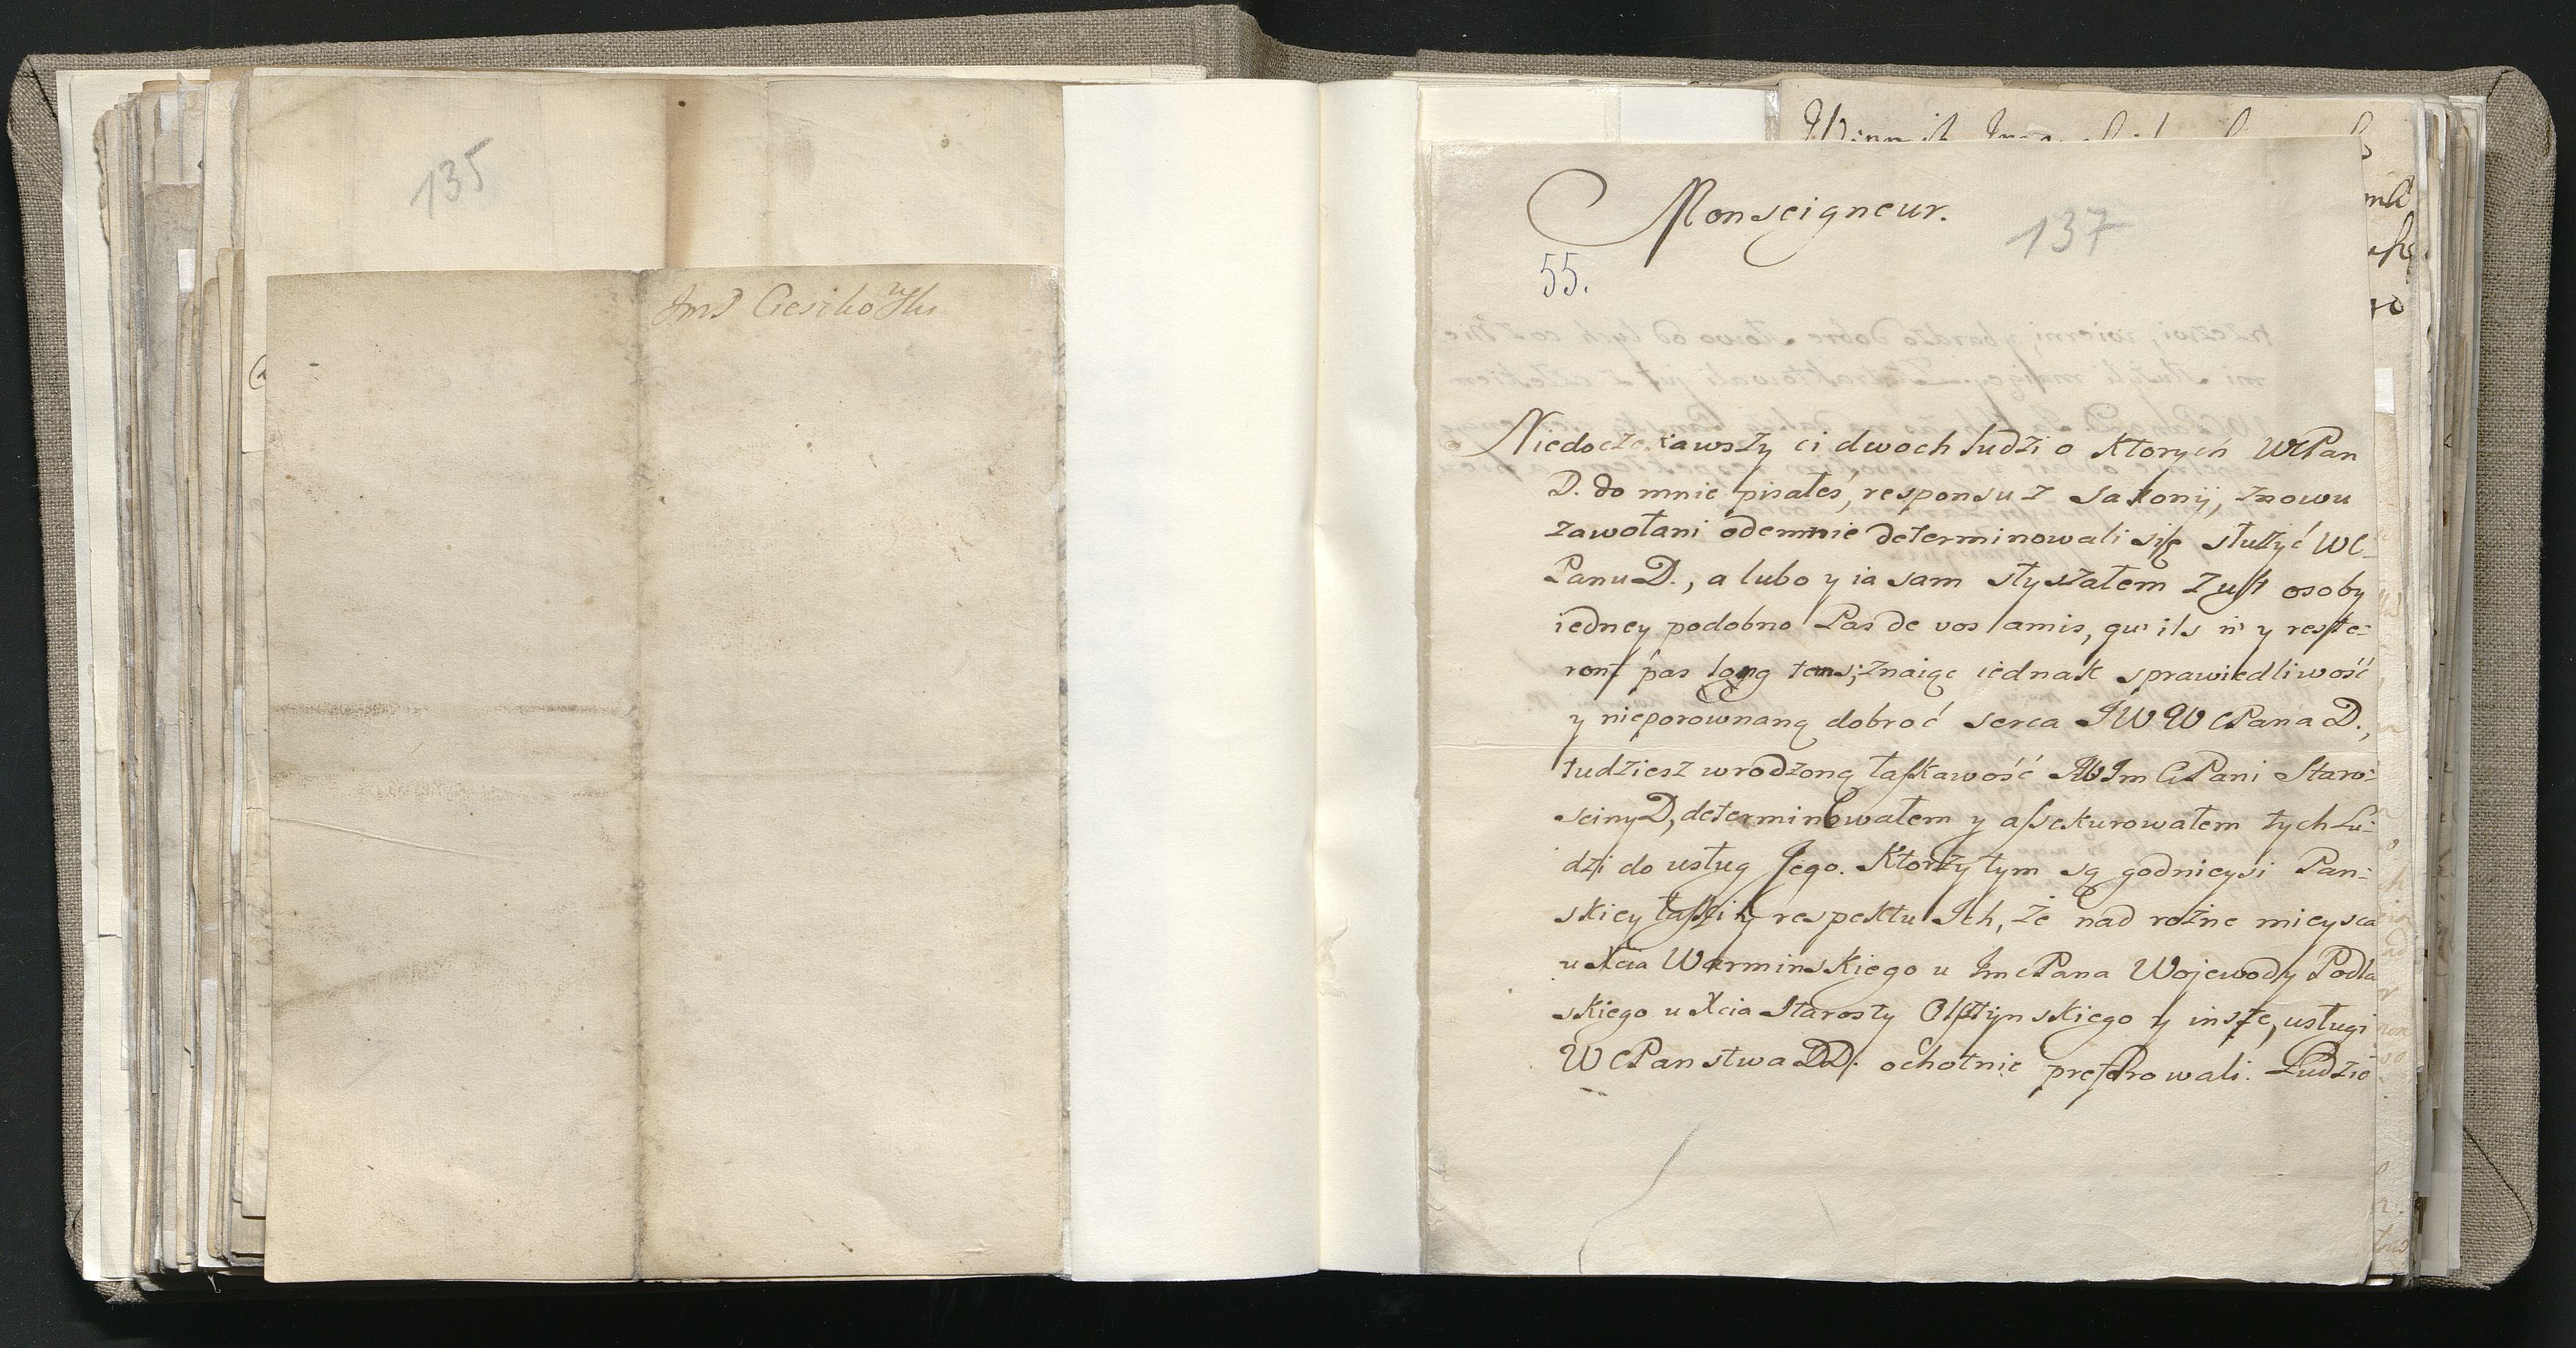 135
Monseigneur.
137
55.
Niedoczekawszy ci dwoch ludzi o ktorych WCPan
D. do mnie pisałeś, responsu z Saxonij, znowu
zawołani odemnie determinowali się służyć WC-
Panu D., a lubo y ia sam słyszałem z ust osoby
iedney podobno Pas de vos amis, qu'ils n'y reste-
ront pas long tems; znaiąc iednak sprawiedliwość
y nieporownaną dobroć serca JWWCPana D.,
tudziesz wrodzoną łaskawość JWImCPani Staro-
sciny D, determinowałem y assekurowałem tych Lu-
dzi do usług Jego. Ktorzy tym są godnieysi Pan-
skiey łaski y respektu Ich, że nad rożne mieysca
u Xcia Warminskiego u ImcPana Wojewody Podla
skiego u Xcia Starosty Olsztynskiego y insze, usługi
WCPanstwa DD. ochotnie preferowali. Ludzie